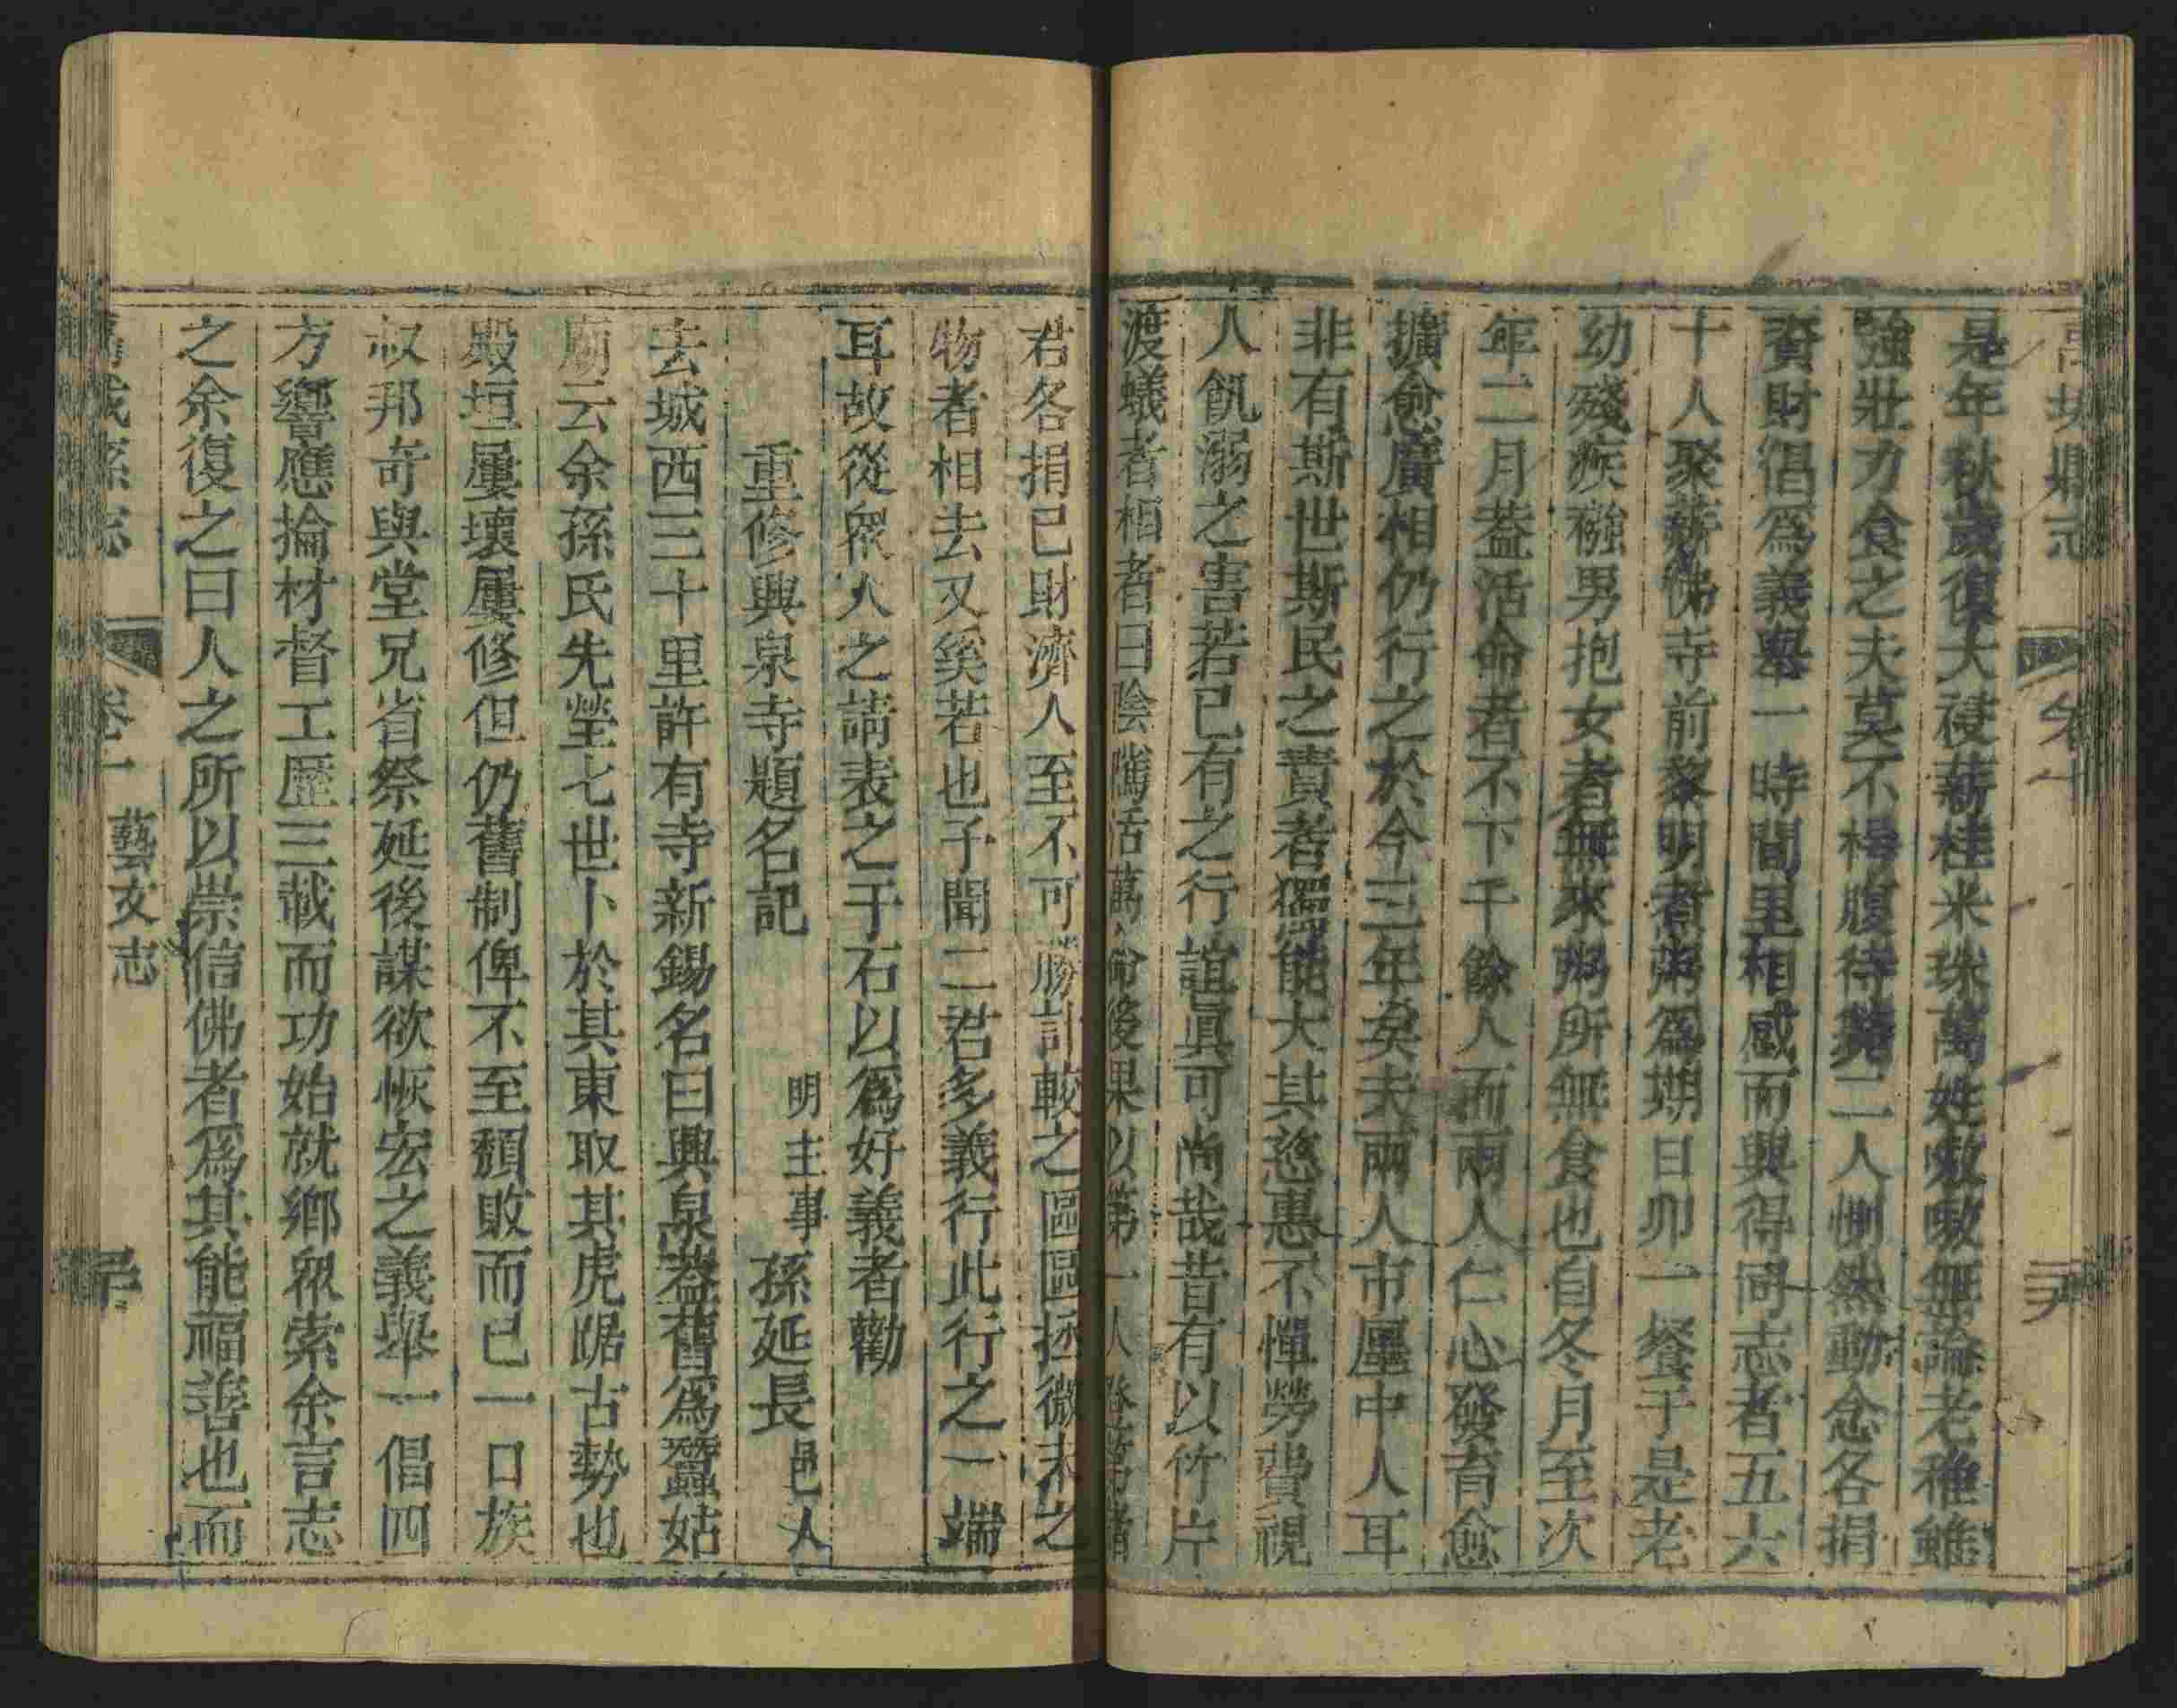 縣志
是年秋歲復大祲薪桂米珠萬姓嗷嗷無論老稚雖
強壯力食之夫莫不枵腹待斃二人惻然動念各捐
資財倡爲義舉一時閭里相感而興得同志者五六
十人聚薪佛寺前黎明煮粥爲期日卯一餐于是老
幼殘疾襁男抱女者無來粥所無食也自冬月至次
年二月葢活命者不下千餘人而兩人仁心發育愈
擴愈廣相仍行之於今三年矣夫兩人市廛中人耳
非有斯世斯民之責者獨能大其慈惠不憚勞費視
人飢溺之害若已有之行誼眞可尚哉昔有以竹片
渡蟻者相者曰陰騭活萬命後果以第一人
君各捐己財濟人至不可勝計較之區區拯微末之
物者相去又奚若也予聞二君多義行此行之一端
耳故從眾人之請表之于石以爲好義者勸
重修興泉寺題名記
明主事孫延長邑人
去城西三十里許有寺新錫名曰興泉葢舊爲蠶姑
廟云余孫氏先塋七世卜於其東取其虎踞古勢也
殿垣屢壞屢修但仍舊制俾不至頹敗而已一口族
叔邦奇與堂兄省祭延後謀欲恢宏之義舉一倡四
方響應掄材督工歷三載而功始就鄉眾索余言志
之余復之曰人之所以崇信佛者爲其能福善也而
城縣志
卷一
藝文志